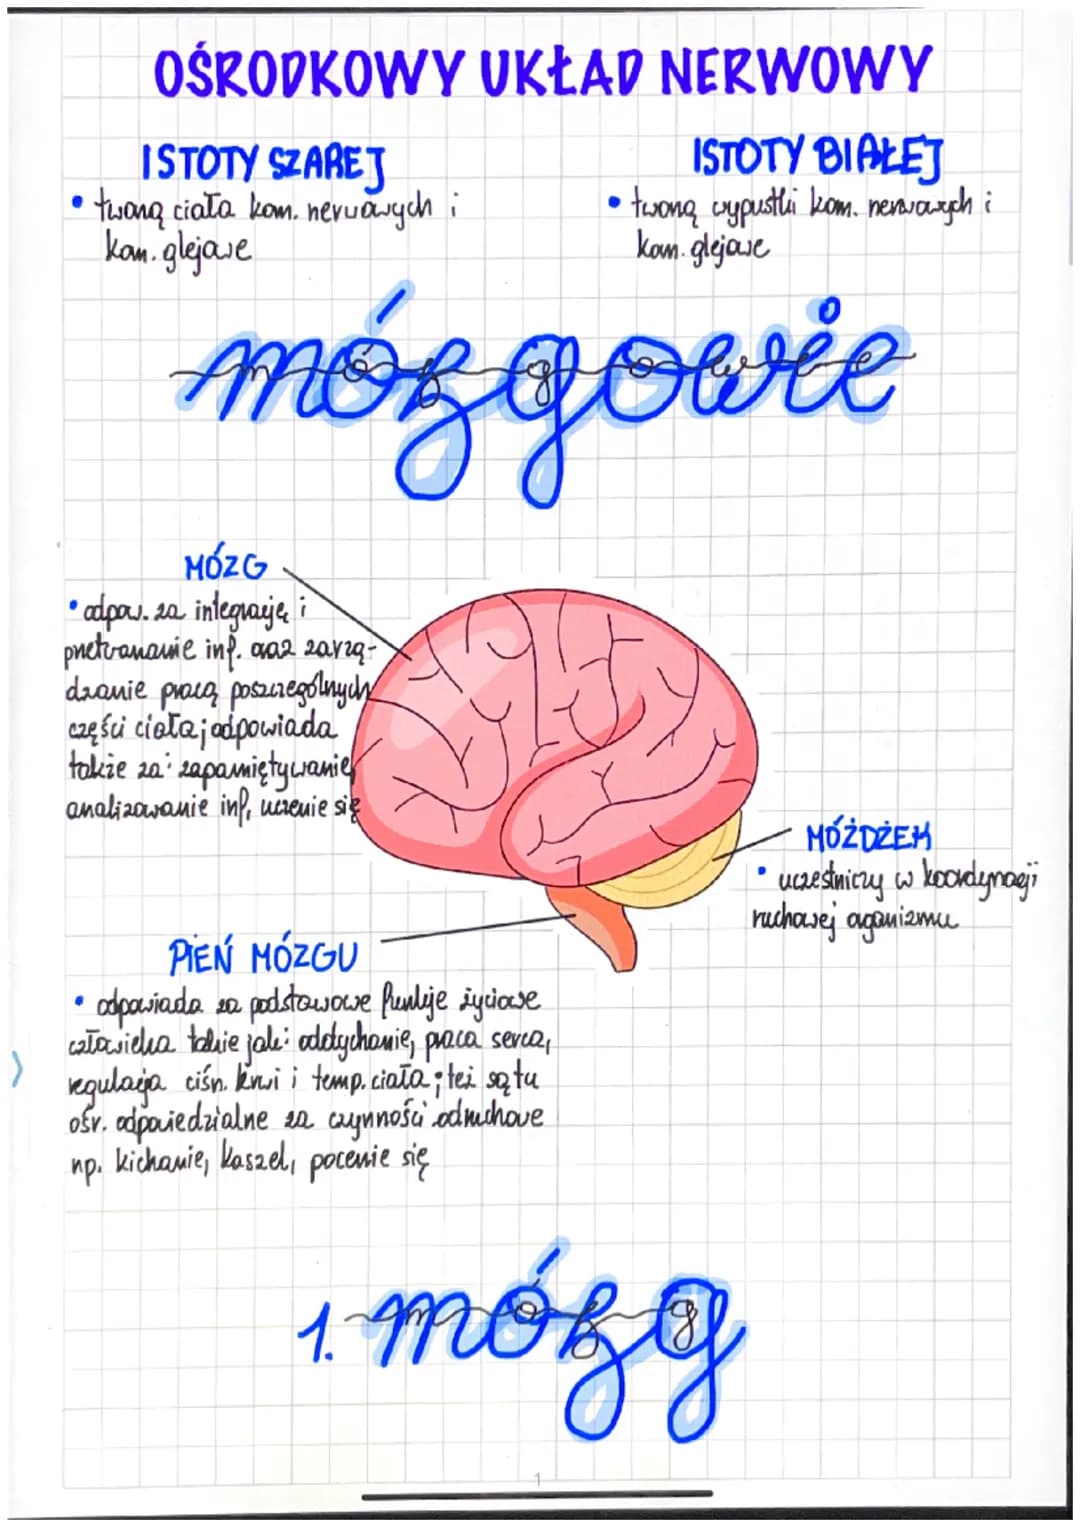 OŚRODKOWY UKŁAD NERWOWY
ISTOTY SZAREJ
• tworzą ciała kom. nerwowych i
kom. glejowe
ISTOTY BIAŁEJ
• tworzą wypustki kom. nerwowych i
kom. glejowe
mózgowie
MÓZG
• odpow. za integrację i
przetwarzanie inf. oraz zarzą-
dzanie pracą poszczególnych
części ciała; odpowiada
także za: zapamiętywanie,
analizowanie inf, uczenie się
MÓŻDŻEK
• uczestniczy w koordynacji
ruchowej organizmu
PIEŃ MÓZGU
• odpowiada za podstawowe funkcje życiowe
człowieka takie jak: oddychanie, praca serca,
regulacja ciśn. krwi i temp. ciała; też są tu
ośr. odpowiedzialne za czynności odruchowe
np. kichanie, kaszel, pocenie się
1. mózg
1